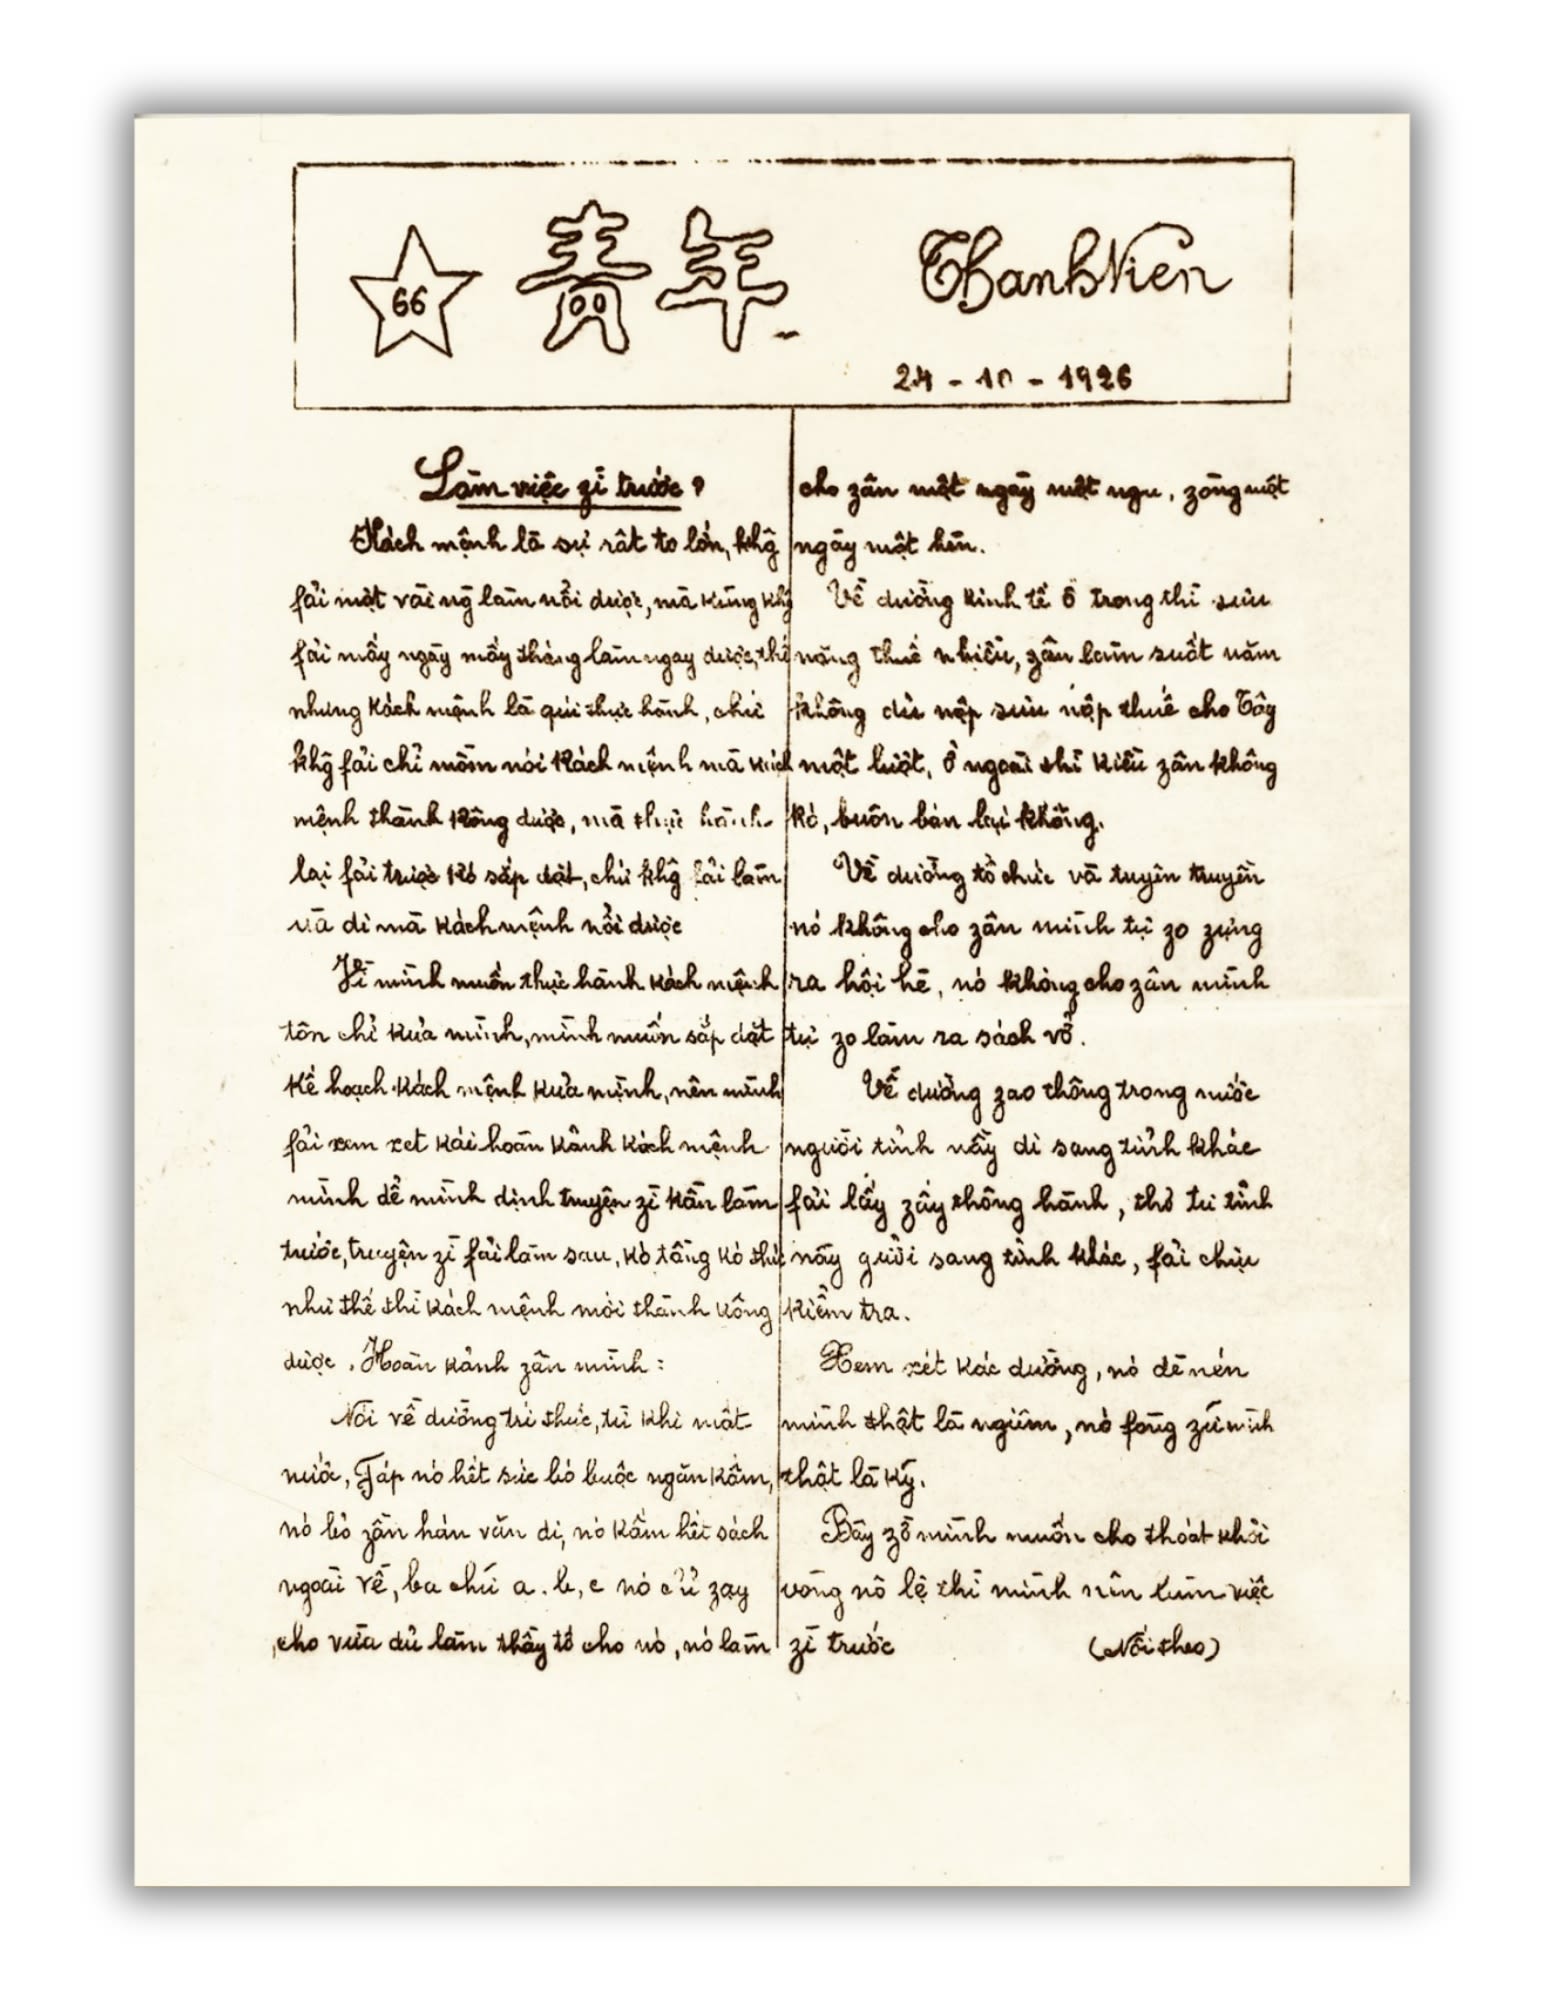 66
青年
Thanh Niên
24 - 10 - 1926
Làm việc zì trước ?
Kách mệnh là sự rất to lớn, khg̃
fải một vài ng̃ làm nổi dược, mà kũng khg̃
fải mấy ngày mấy tháng làm ngay dược, thế
nhưng kách mệnh là quí thực hành, chứ
khg̃ fải chỉ mồm nói kách mệnh mà kách
mệnh thành kông dược, mà thực hành
lại fải trước kó sắp dặt, chứ khg̃ fải làm
và di mà kách mệnh nổi dược
Vì mình muốn thực hành kách mệnh
tôn chỉ kủa mình, mình muốn sắp dặt
kế hoạch kách mệnh kủa mình, nên mình
fải xem xet kái hoàn kảnh kách mệnh
mình dể mình dịnh truyện zì kần làm
trước, truyện zì fải làm sau, kó tầng kó thứ
như thế thì kách mệnh mới thành kông
dược. Hoàn kảnh zân mình :
Nói về dường trí thức, từ khi mất
nước, Fáp nó hết sức bó buộc ngăn kấm,
nó bỏ zần hán văn di, nó kấm hết sách
ngoài về, ba chữ a. b, c nó chỉ zạy
cho vừa dủ làm thầy tớ cho nó, nó làm
cho zân một ngày một ngu, zòng một
ngày một hèn.
Về dường kinh tế ở trong thì sưu
nặng thuế nhiều, zân làm suốt năm
không dủ nộp sưu nộp thuế cho Tây
một lượt, ở ngoài thì kiều zân không
kó, buôn bán lại không.
Về dường tổ chức và tuyên truyền
nó không cho zân mình tự zo zựng
ra hội hè, nó không cho zân mình
tự zo làm ra sách vở.
Về dường zao thông trong nước
người tỉnh nầy di sang tỉnh khác
fải lấy zấy thông hành, thơ từ tỉnh
nầy gưởi sang tỉnh khác, fải chịu
kiểm tra.
Xem xét kác dường, nó dè nén
mình thật là ngiêm, nó fòng zữ mình
thật là kỹ.
Bây zờ mình muốn cho thoát khỏi
vòng nô lệ thì mình nên làm việc
zì trước
(Nối theo)